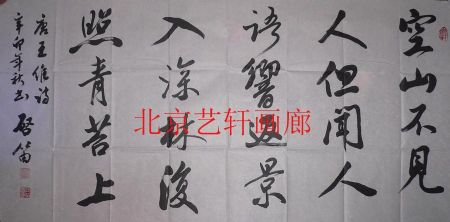 空山不見
人但聞人
語響返景
入深林復
照青苔上
唐王維詩
辛卯年秋书
北京艺轩画廊